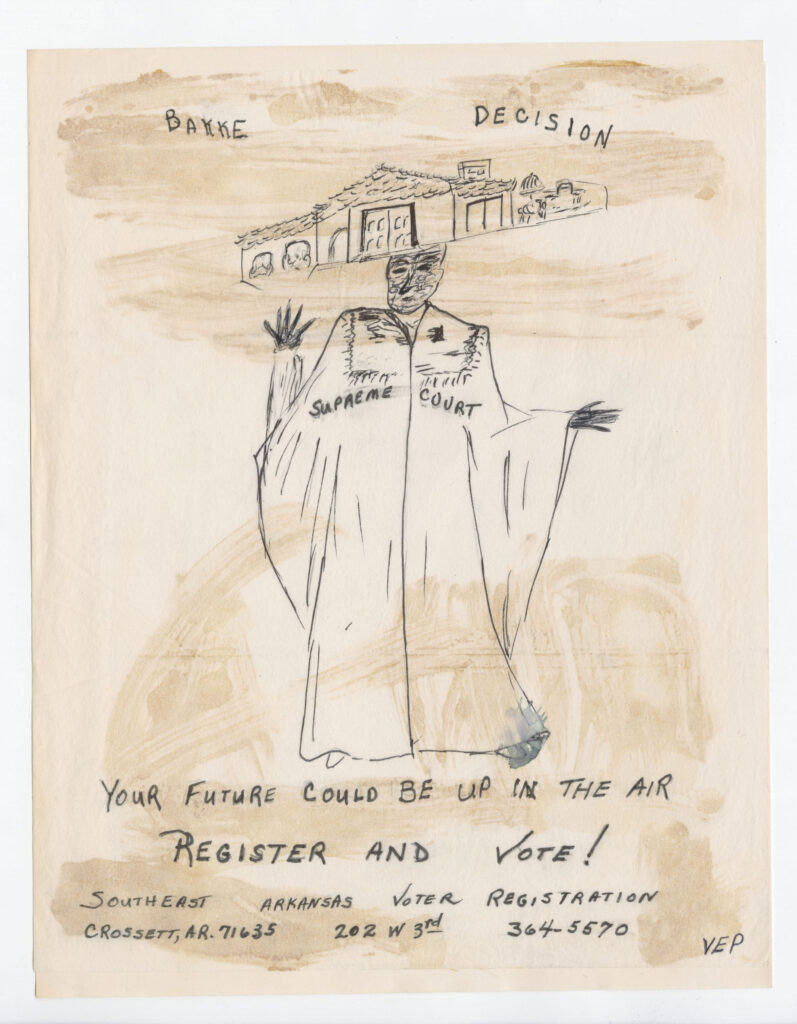 BAKKE DECISION
SUPREME COURT
YOUR FUTURE COULD BE UP IN THE AIR
REGISTER AND VOTE!
SOUTHEAST ARKANSAS VOTER REGISTRATION
CROSSETT, AR. 71635 202 W 3rd 364-5570
VEP